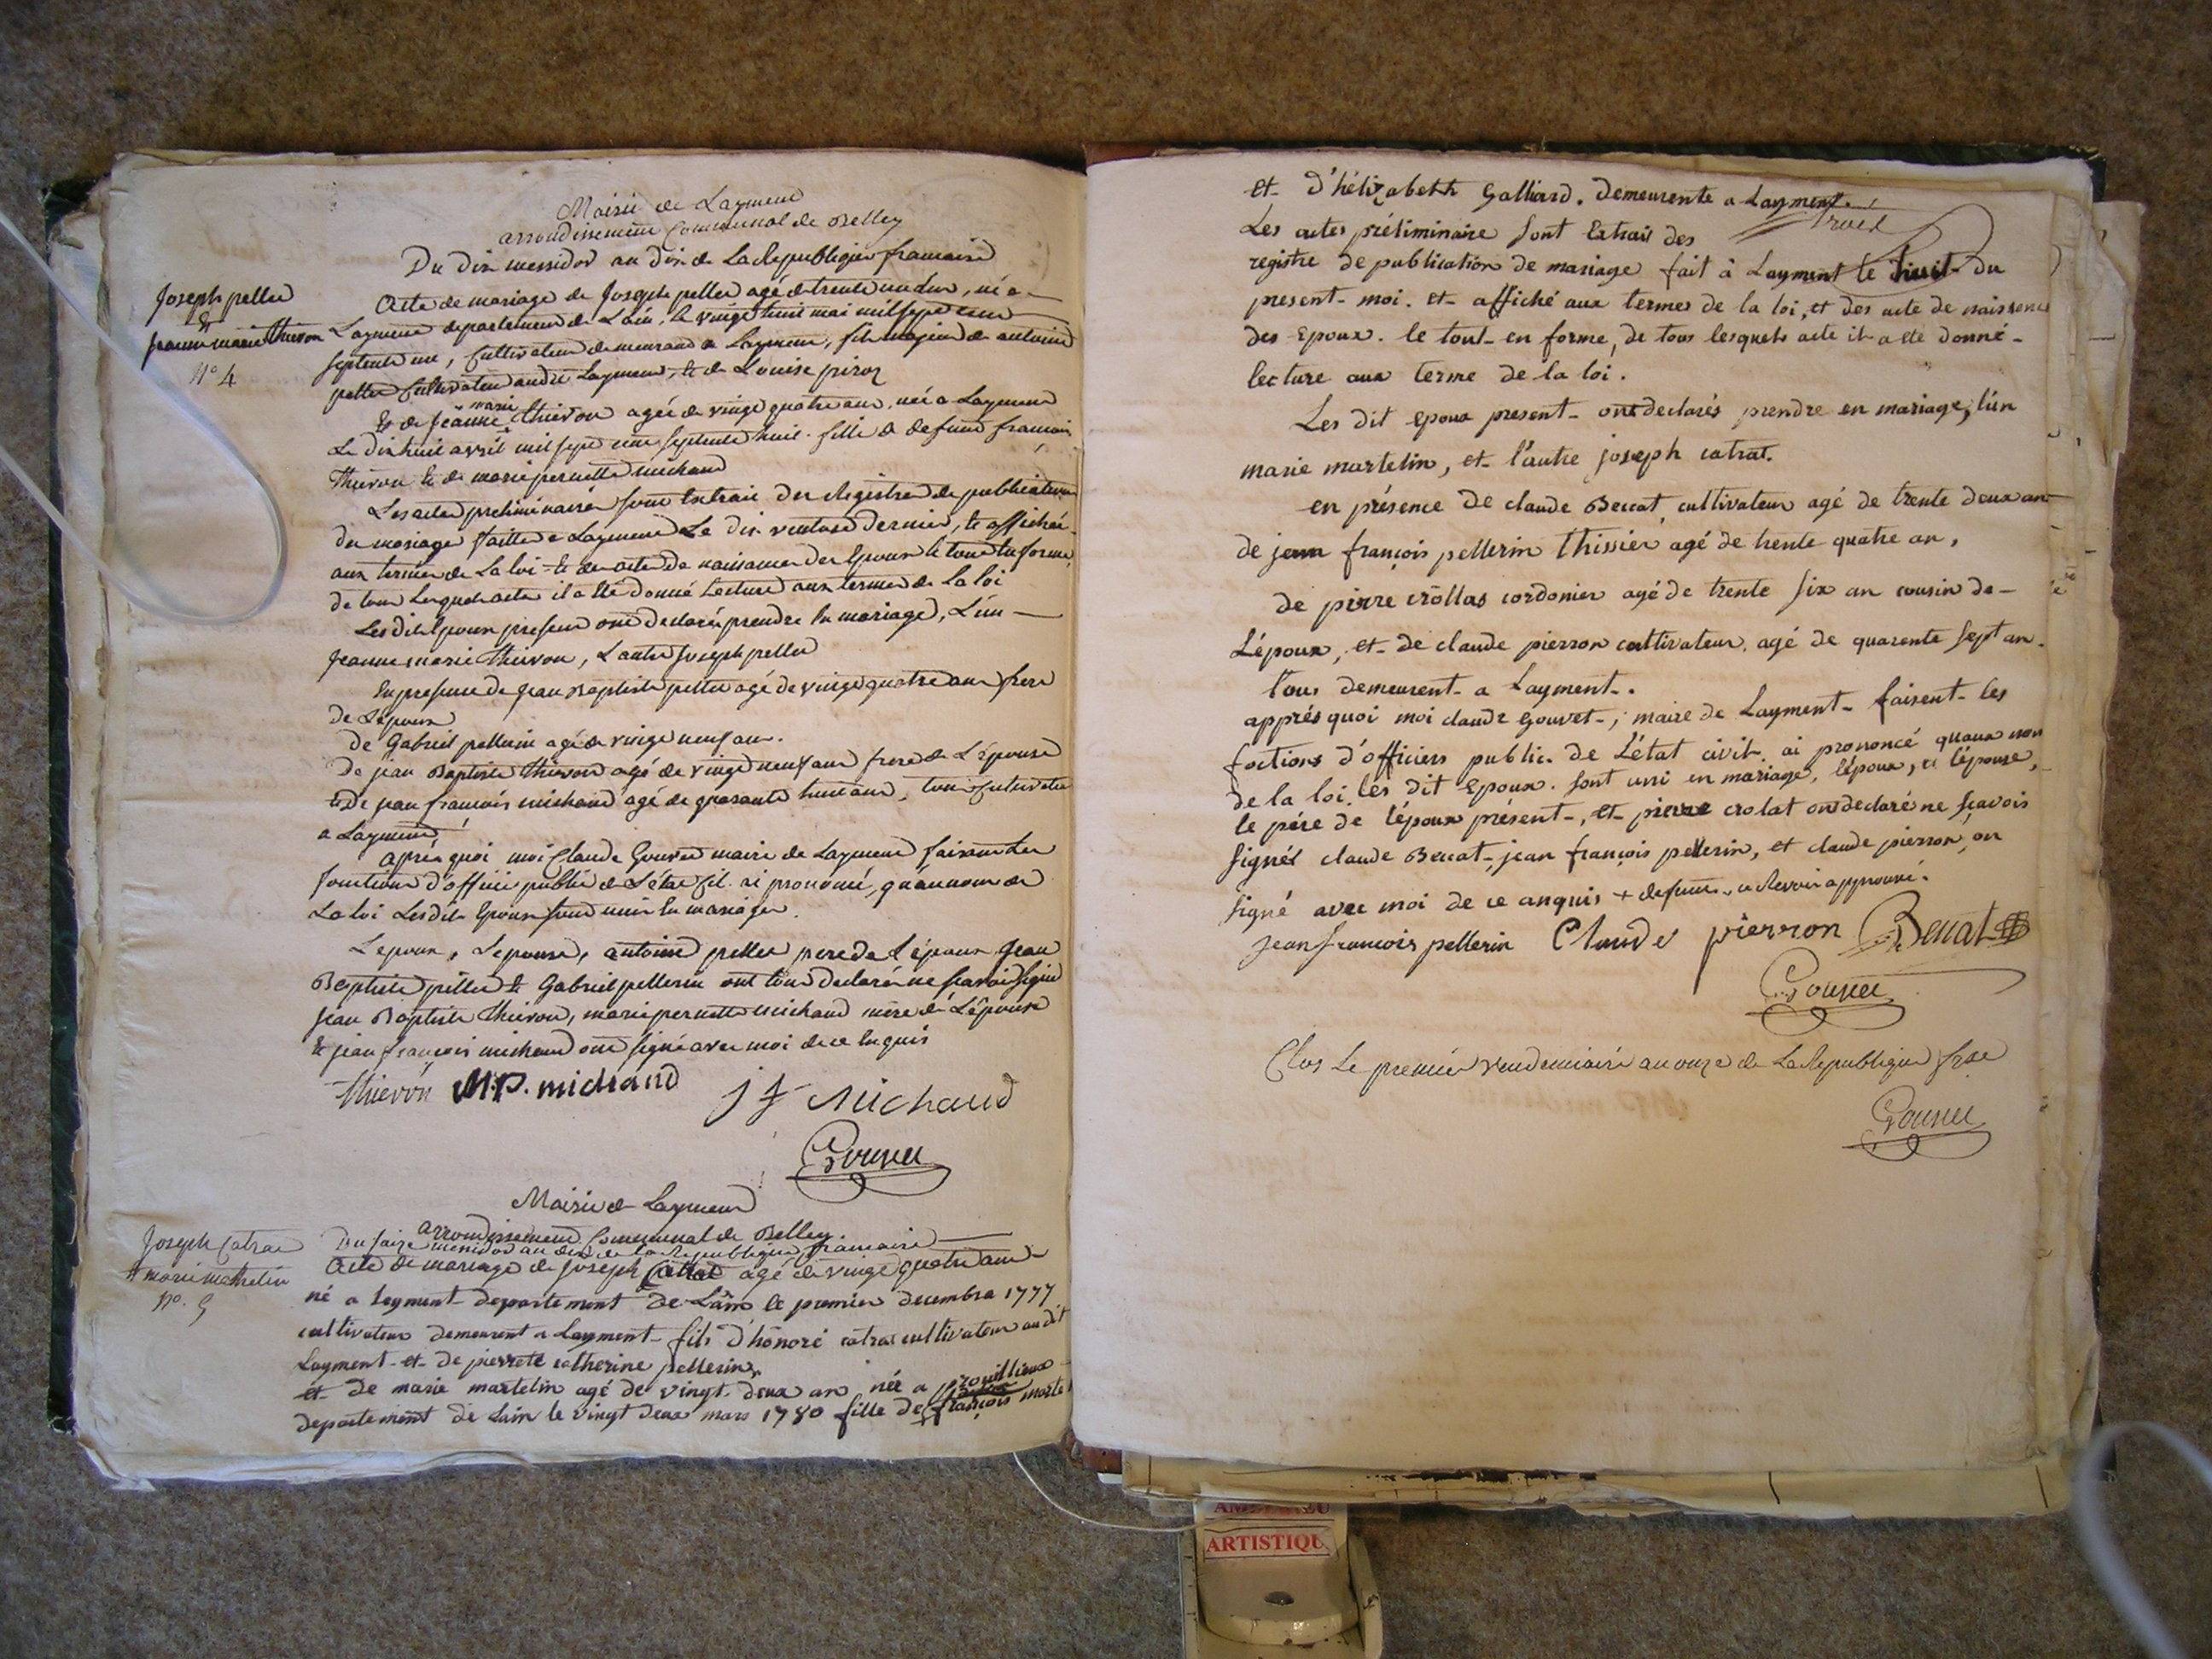 Mairie de Layment
arrondissement Communal de Belley
Du dix messidor an dix de La Republique francaise
Joseph pellet
Et
jeanne marie thievon
N° 4
Acte de mariage de Joseph pellet agé de trente un ans, né a
Layment departement de L'ain, le vingt huit mai mil sept cent
septente un, Cultivateur demeurant a Layment, fils majeur de antoine
pellet Cultivateur audit Layment, et de Louise piroz
marie
Et de jeanne thievon agée de vingt quatre ans, née a Layment
Le dix huit avril mil sept cent septente huit. fille de defunt francois
thievon et de marie pernette michaud
Les actes preliminaires sont Extrait des Registres de publication
du mariage faitte a Layment Le dix ventose dernier, et affichés
aux termes de La loi et des actes de naissances des Epoux le tout En forme,
de tous Lesquels actes il a Eté donné Lecture aux termes de La loi
Lesdits Epoux present ont declarés prendre En mariage, L'un
jeanne marie thievon, L'autre Joseph pellet
En presence de jean Baptiste pellet agé de vingt quatre ans frere
de L'epoux
de Gabriel pellerin agé de vingt neuf ans.
De jean Baptiste thievon agé de vingt neuf ans frere de L'épouse
et de jean francois michaud agé de quarante huit ans, tous Cultivateur
a Layment
après quoi moi Claude Gouvet maire de Layment faisant Les
fonctions d'officié public de L'état Cil. ai prononcé, qu'au nom de
La loi Lesdits Epoux sont unis En mariage.
L'epoux, L'epouse, antoine pellet pere de L'époux jean
Baptiste pellet et Gabriel pellerin ont tous declarés ne scavoir signé
jean Baptiste thievon, marie pernette michaud mère de L'épouse
et jean francois michaud ont signé avec moi de ce Enquis
thievon M.P. michaud
J f Michaud
Gouvet
Mairie de Layment
arrondissement Communal de Belley.
Joseph Catrat
et marie martelin
N°. 5
Du saize messidor an dix de la Republique francaise
Acte de mariage de Joseph Catrat agé de vingt quatre ans
né a Layment departement de L'ain le premier decembre 1777
cultivateur demeurent a Layment fils d'honoré catrat cultivateur au dit
Layment et de pierrete catherine pellerin,
et de marie martelin agé de vingt deux an née a prouillieux
departement de Lain le vingt deux mars 1780 fille de + françois martel
et d'hélizabeth Galliard. demeurente a Layment.
Les actes préliminaire sont Extrait des
registre de publication de mariage fait à Layment le huit du
present moi. et affiché aux termes de la loi, et des acte de naissence
des Epoux. le tout en forme, de tous lesquels acte il a eté donné
lecture aux terme de la loi.
Les dit epoux present ont declarés prendre en mariage, l'un
marie martelin, et l'autre joseph catrat.
en présence de claude Beccat, cultivateur agé de trente deux an
de jean françois pellerin thissier agé de trente quatre an,
de pierre crollas cordonier agé de trente six an cousin de
L'époux, et de claude pierron cultivateur. agé de quarente sept an.
tous demeurent a Layment.
apprés quoi moi claude Gouvet, maire de Layment faisent les
foctions d'officiers public de L'état civil. ai prononcé quaux non
de la loi les dit Epoux. sont uni en mariage, l'époux, et l'épouse,
le pére de l'époux présent, et pierre crolat on declaré ne scavois
signés claude Beccat, jean françois pellerin, et claude pierron, on
signé avec moi de ce anquis + defunt ce Renvoi approuvé.
jean francois pellerin Claude pierron Beccat
Gouvet
Clos Le premier vendemiaire an onze de La Republique frse
Gouvet
ARTISTIQU